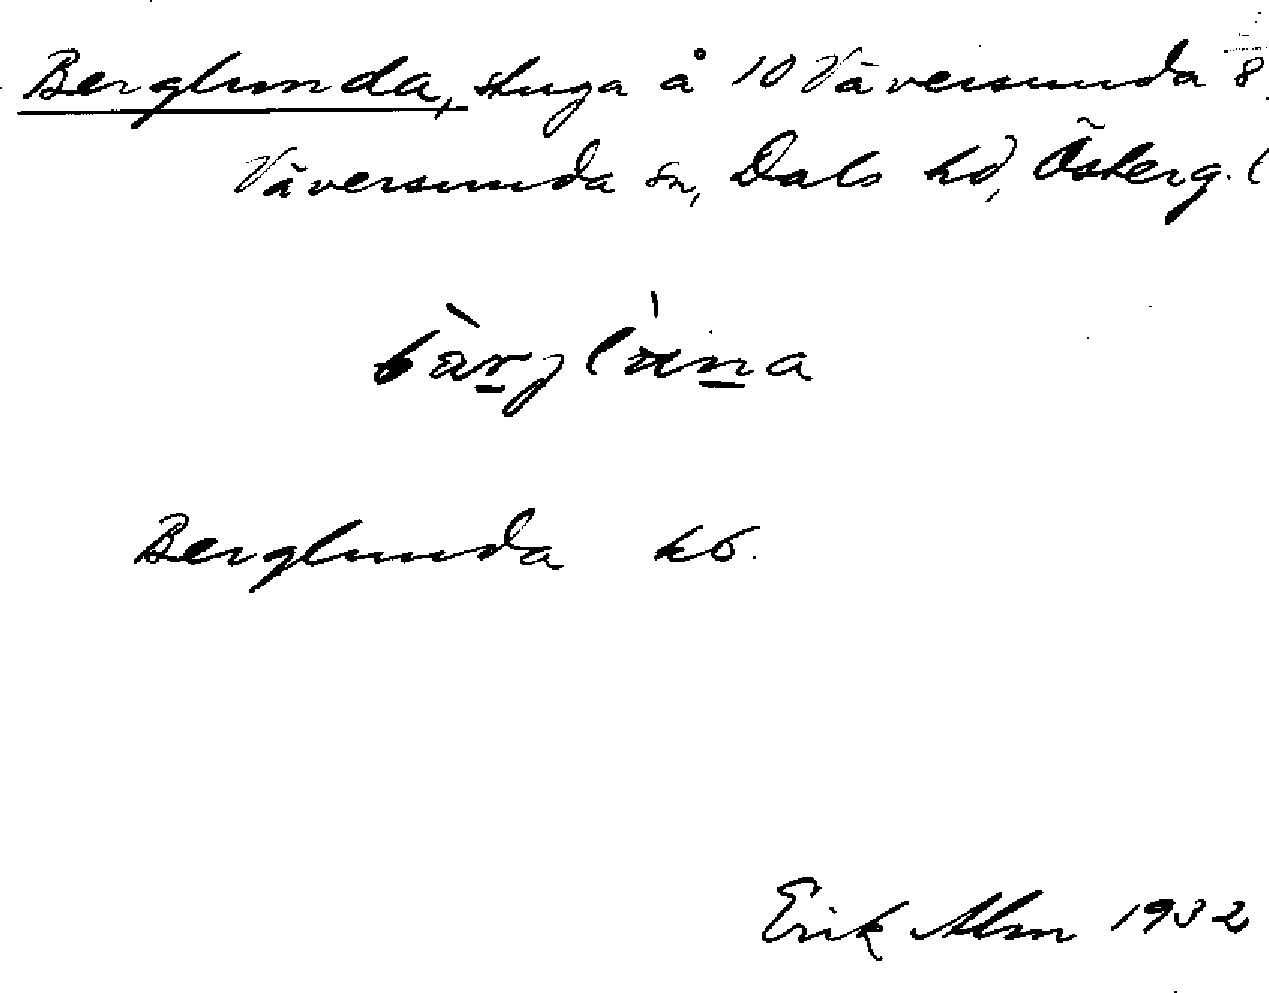 Berglunda, stuga å 10 Väversunda 8
Väversunda sn, Dals hd, Österg. l
bärjlúna
Berglunda kb.
Erik Alm 1932